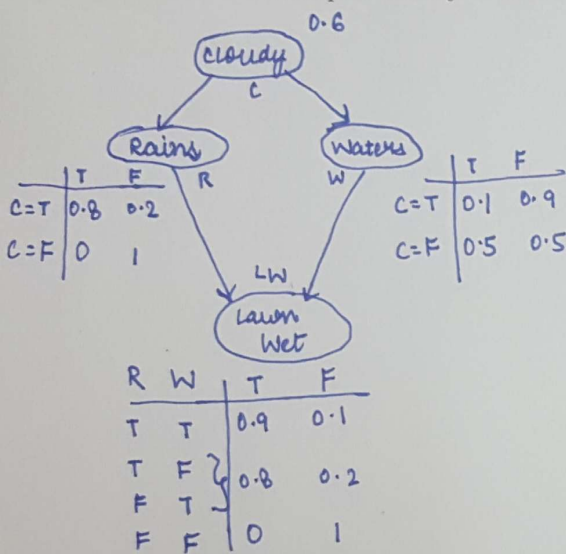 0.6
Cloudy
C
Rains
Waters
T F
R
W
T F
C=T 0.8 0.2
C=T 0.1 0.9
C=F 0 1
C=F 0.5 0.5
LW
Lawn
Wet
R W T F
T T 0.9 0.1
T F
0.8 0.2
F T
F F 0 1